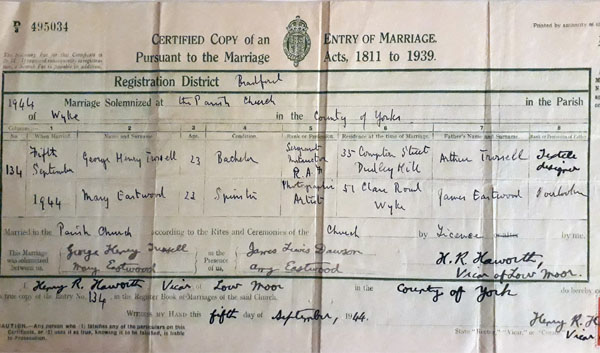 495034
CERTIFIED COPY of an ENTRY OF MARRIAGE.
Pursuant to the Marriage Acts, 1811 to 1939.
Registration District Bradford
1944 Marriage Solemnized at the Parish Church in the Parish
of Wyke in the County of Yorks
1 2 3 4 5 6 7 8
No. When Married Name and Surname Age Condition Rank or Profession Residence at the time of Marriage Father's Name and Surname
134 Fifth September 1944 George Henry 23 Bachelor Sergeant Instructor R.A.F 35 Compton Street Dudley Hill Arthur Textile designer
Mary Eastwood 22 Spinster Photographic Artist 51 Clare Road Wyke James Eastwood
Married in the Parish Church according to the Rites and Ceremonies of the Church by Licence by me,
This Marriage was solemnized between us, George Henry in the Presence of us, James Lewis Dawson H. R. Haworth,
Mary Eastwood Amy Eastwood Vicar of Low Moor.
I, Henry R. Haworth Vicar of Low Moor in the County of York do hereby
true copy of the Entry No. 134 in the Register Book of Marriages of the said Church.
WITNESS MY HAND this fifth day of September, 1944. Henry R. H
Vicar
CAUTION.—Any person who (1) falsifies any of the particulars on this
Certificate, or (2) uses it as true, knowing it to be falsified, is liable
to Prosecution.